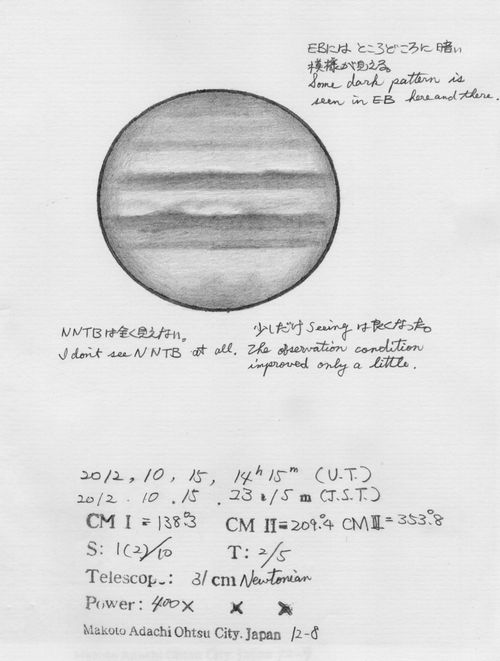 EBには ところどころに 暗い
模様が見える。
Some dark pattern is
seen in EB here and there.
NNTBは全く見えない。
I don't see NNTB at all.
少しだけ Seeing は良くなった。
The observation condition
improved only a little.
2012, 10, 15, 14h 15m (U.T.)
2012. 10. 15. 23h 15 m (J.S.T.)
CM I = 138°.3 CM II = 209°.4 CM III = 353°.8
S: 1(2)/10 T: 2/5
Telescop.: 31 cm Newtonian
Power: 400× × ×
Makoto Adachi Ohtsu City. Japan 12-8